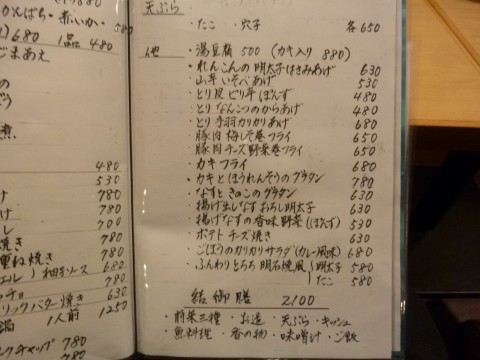 かんぱち・赤いか 580
680 1品 480
ごまあえ
の
煮
480
け 530
780
け 780
し 700
焼き 780
重ね焼き 780
エル）柚子ソース 680
780
チョ 630
リックバター焼き 1250
鍋 1人前
ンクチャップ 780
780
天ぷら
・たこ ・穴子 各650
他 ・湯豆腐 500 (カキ入り 880)
・れんこんの明太子はさみあげ 630
・山芋いそべあげ 530
・とり皮ピリ辛ぽんず 480
・とりなんこつのからあげ 480
・とり手羽カリカリあげ 680
・豚肉梅しそ巻フライ 650
・豚肉チーズ野菜巻フライ 650
・カキフライ 680
・カキとほうれんそうのグラタン 780
・なすときのこのグラタン 630
・揚げ出しなすおろし明太子 630
・揚げなすの香味野菜(ぽんず) 530
・ポテトチーズ焼き 630
・ごぼうのカリカリサラダ(カレー風味) 680
・ふんわりとろろ明石焼風）明太子 580
たこ 580
結御膳 2100
・前菜三種 ・お造 ・天ぷら・キッシュ
・魚料理 ・香の物 ・味噌汁・ご飯